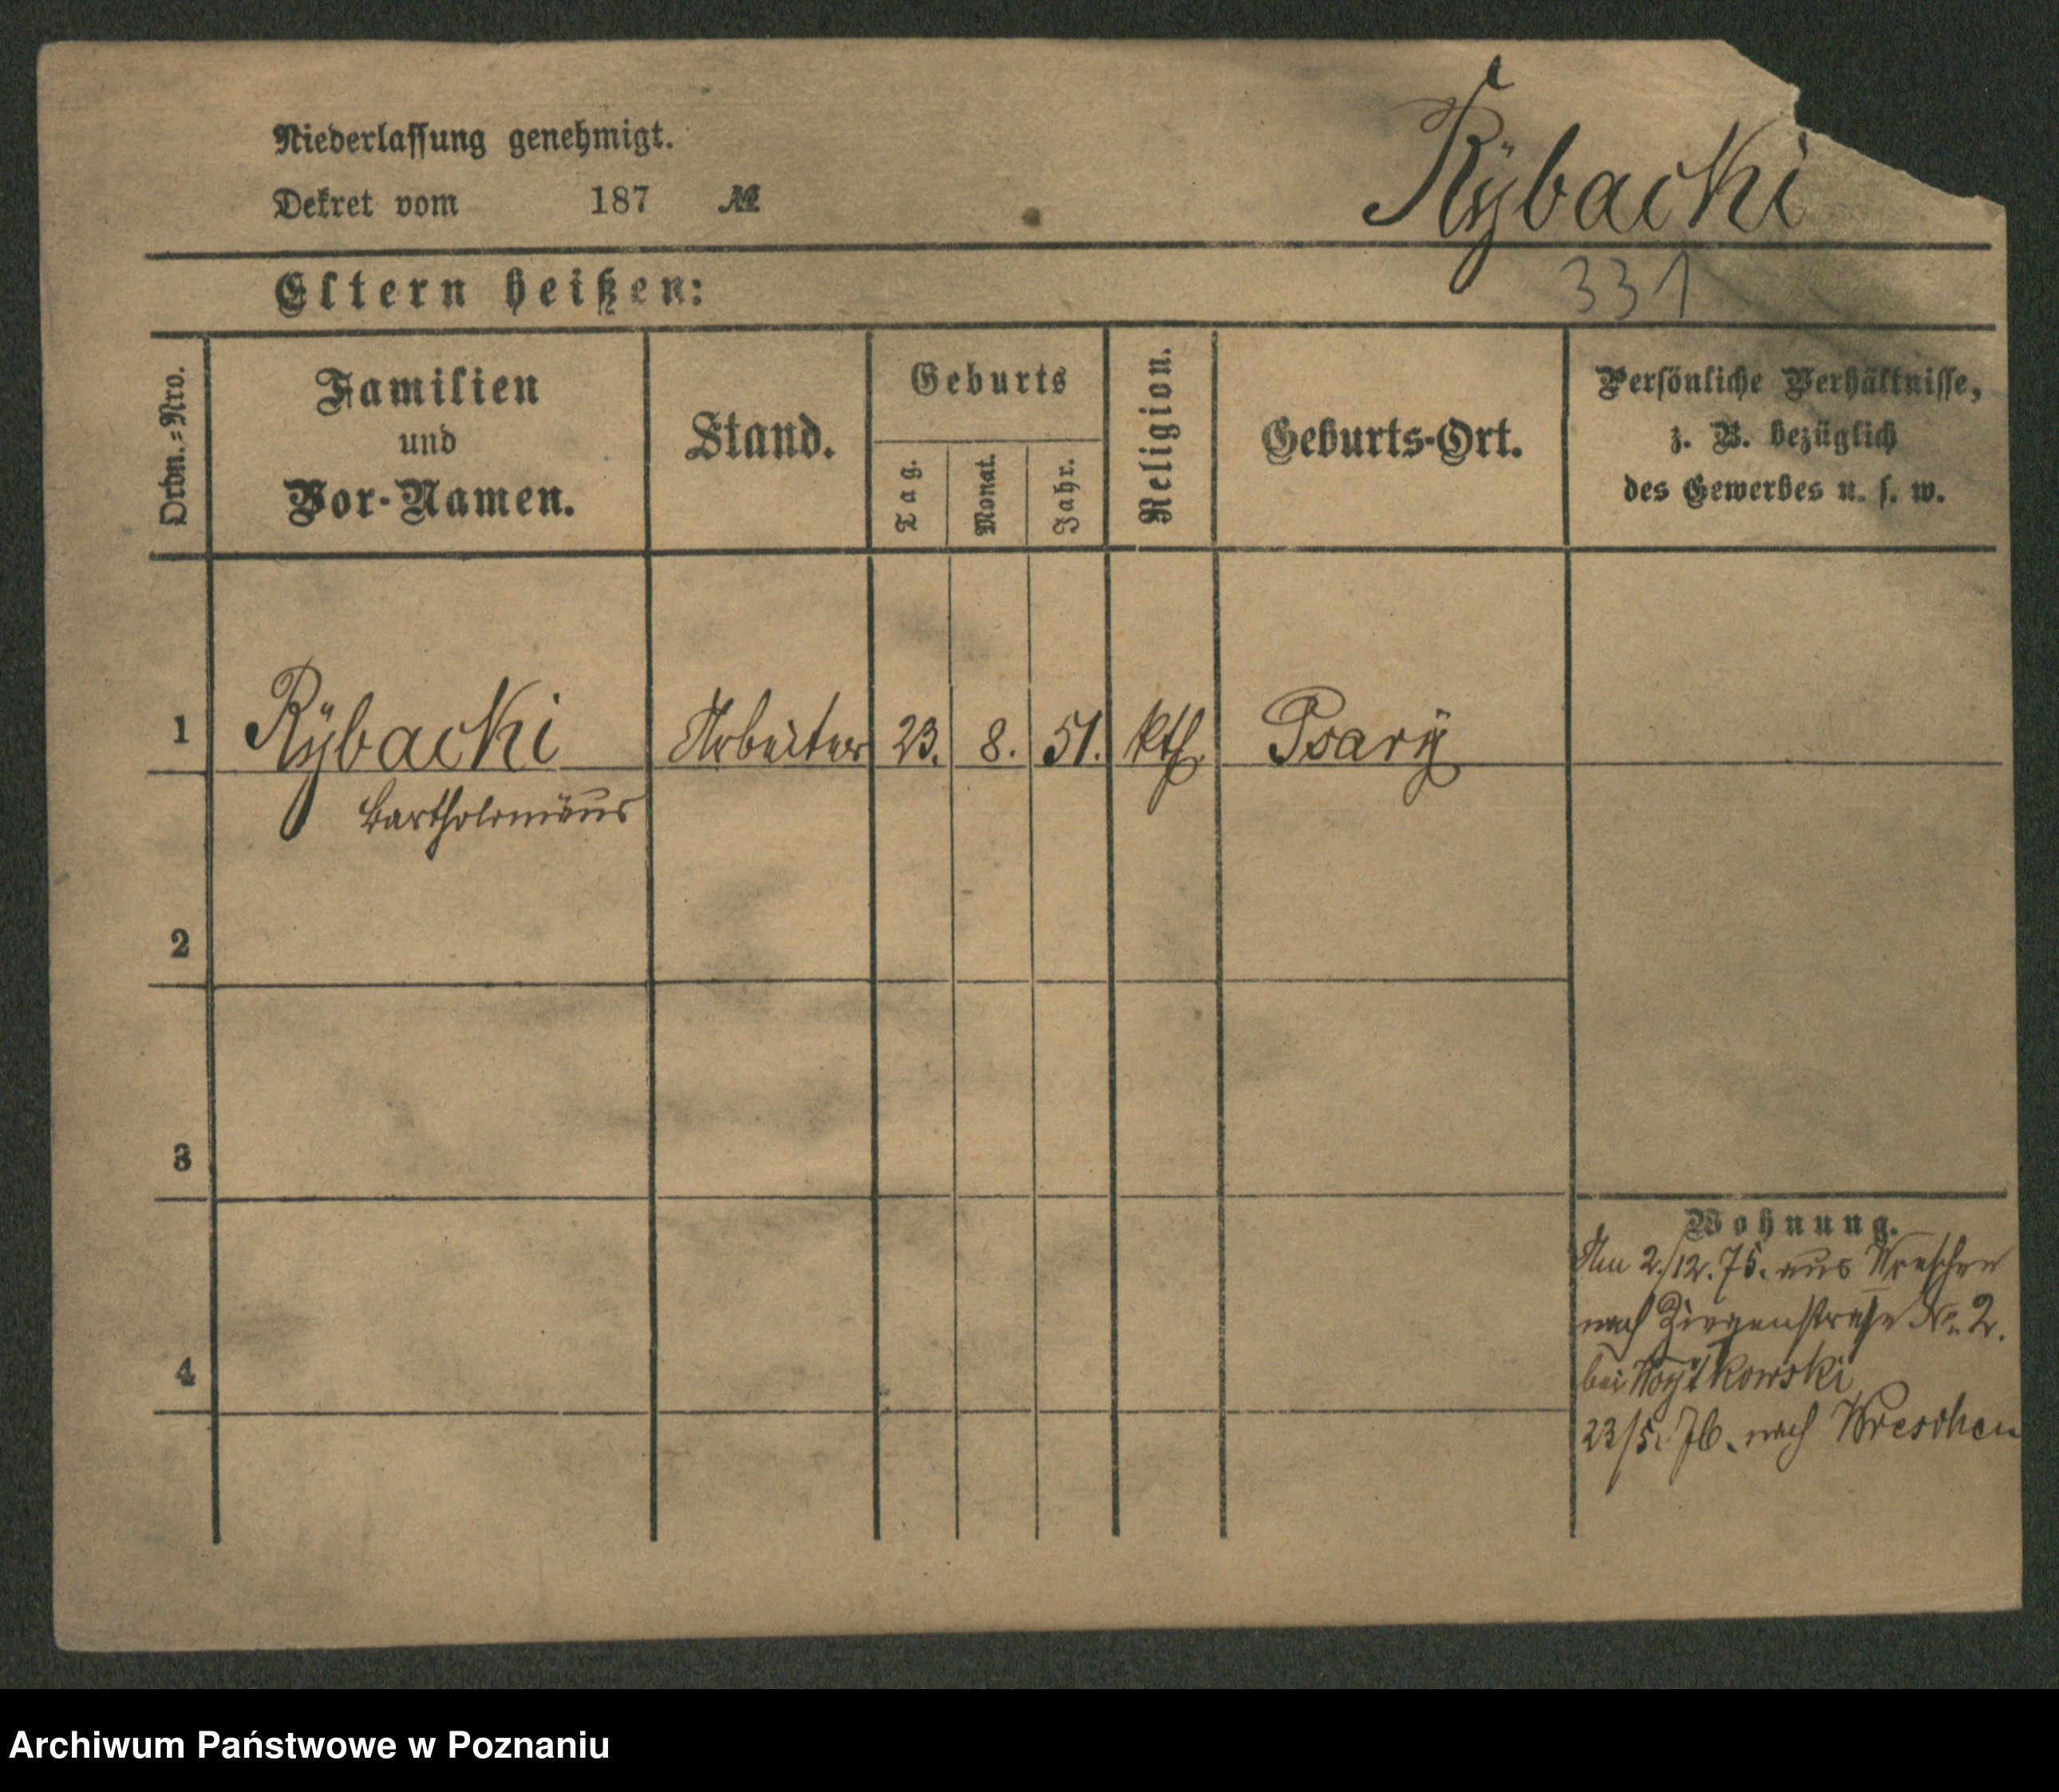 Niederlassung genehmigt.
Dekret vom 187 №
Rÿbacki
331
Eltern heißen:
Ordn.=Nro.
Familien
und
Vor-Namen.
Stand.
Geburts
Tag.
Monat.
Jahr.
Religion.
Geburts-Ort.
Persönliche Verhältnisse,
z. B. bezüglich
des Gewerbes u. s. w.
1 Rÿbacki Arbeiter 23. 8. 51. kth. Psarÿ
Bartholomäus
2
3
4
Wohnung.
Am 2./12. 75. aus Wreschen
nach Ziegenstraße No 2.
bei Woÿtkowski
23/5. 76. nach Wreschen
Archiwum Państwowe w Poznaniu